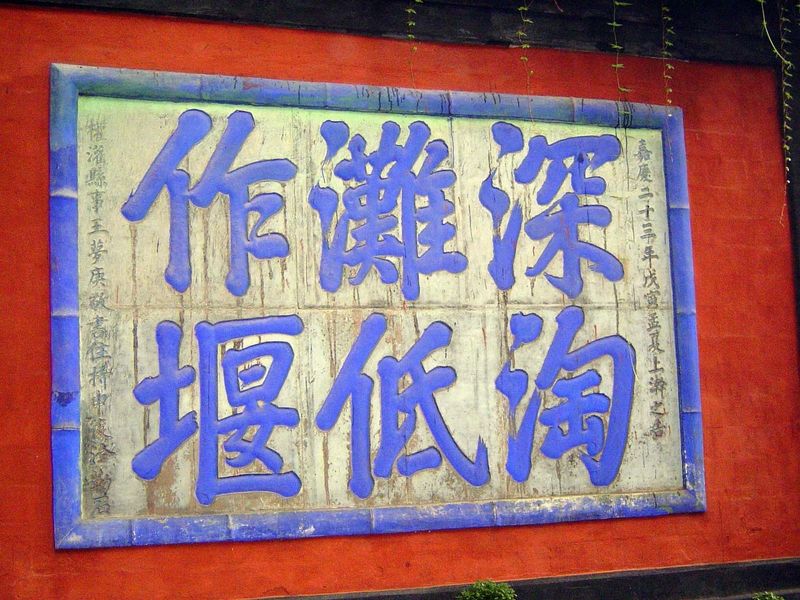 嘉慶二十三年戊寅孟夏上澣之吉
深淘
灘低
作堰
灌縣事王夢庚敬書住持申 勒石